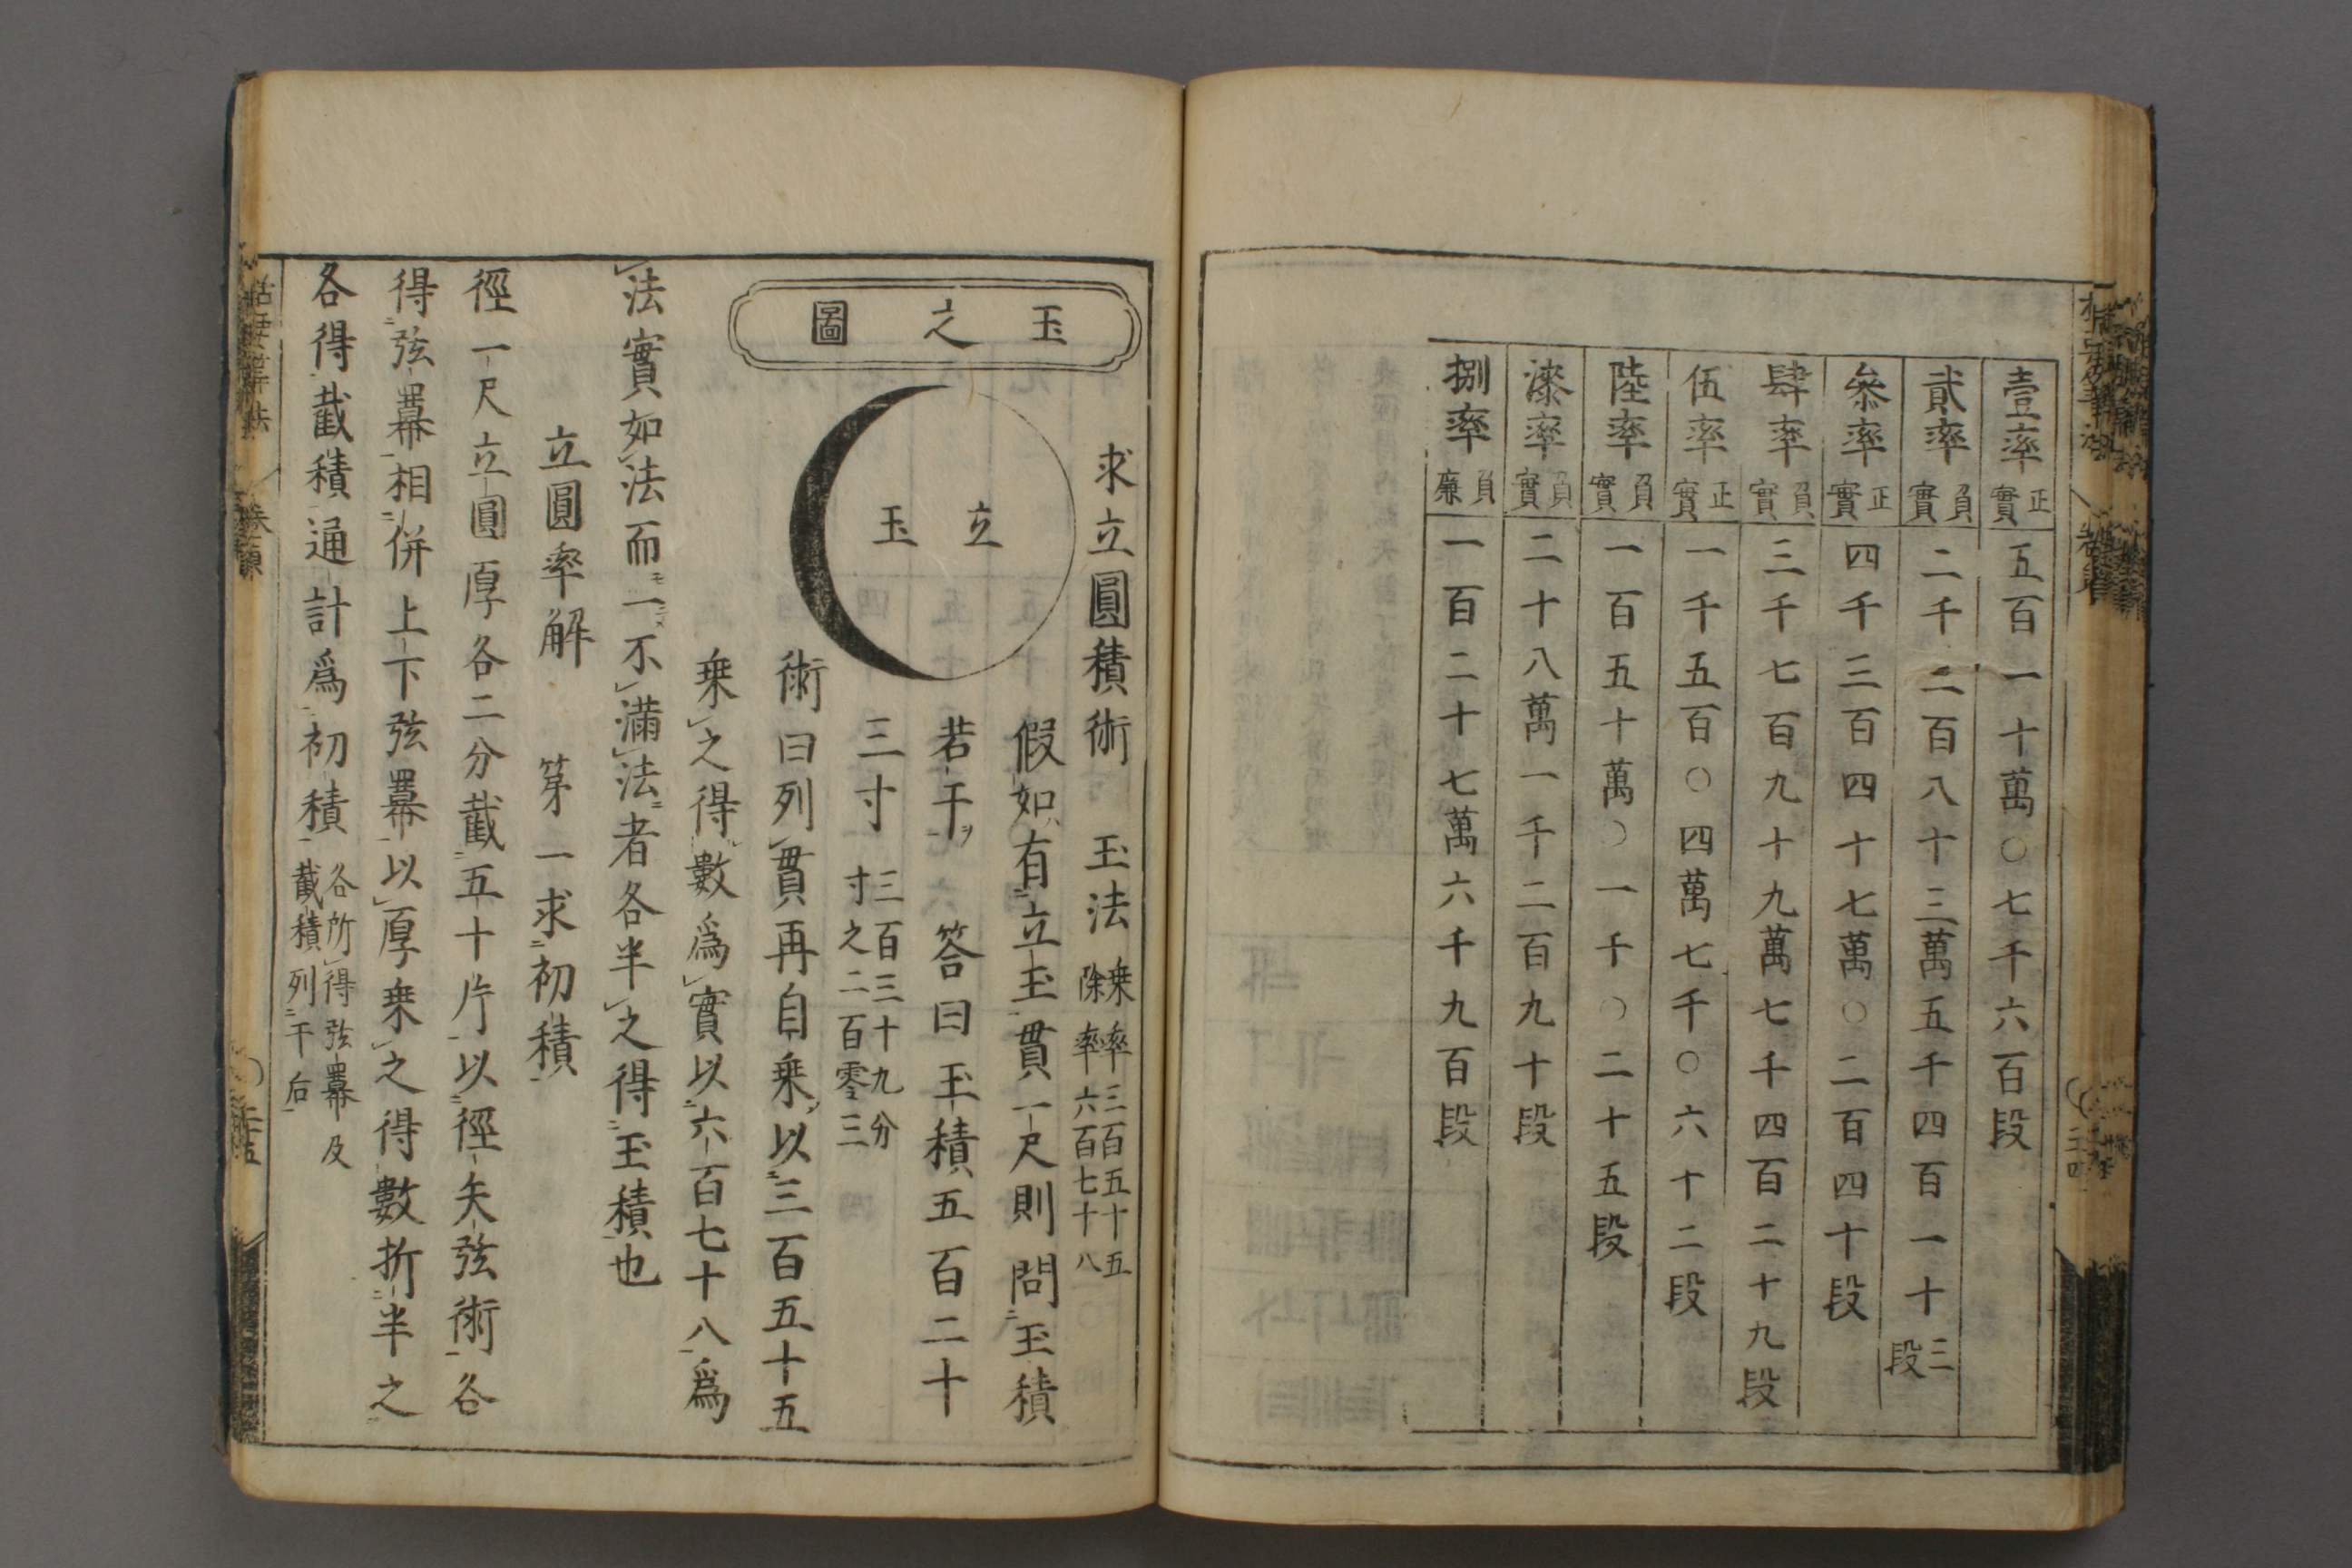 壹率 正實 五百一十萬〇七千六百段
貳率 負實 二千二百八十三萬五千四百一十三段
叅率 正實 四千三百四十七萬〇二百四十段
肆率 負實 三千七百九十九萬七千四百二十九段
伍率 正實 一千五百〇四萬七千〇六十二段
陸率 負實 一百五十萬〇一千〇二十五段
漆率 負實 二十八萬一千二百九十段
捌率 負廉 一百二十七萬六千九百段
求立圓積術 玉法 乗率三百五十五
除率六百七十八
玉之圖
立玉
假如有立玉貫一尺則問玉積
若干 答曰玉積五百二十
三寸 三百三十九分
寸之二百零三
術曰列貫再自乗以三百五十五
乗之得數爲實以六百七十八爲
法實如法而一不滿法者各半之得玉積也
立圓率解 第一求初積
徑一尺立圓厚各二分截五十片以徑矢弦術各
得弦冪相併上下弦冪以厚乗之得數折半之
各得截積通計爲初積 各所得弦冪及
截積列干后
括要筭法 卷貞